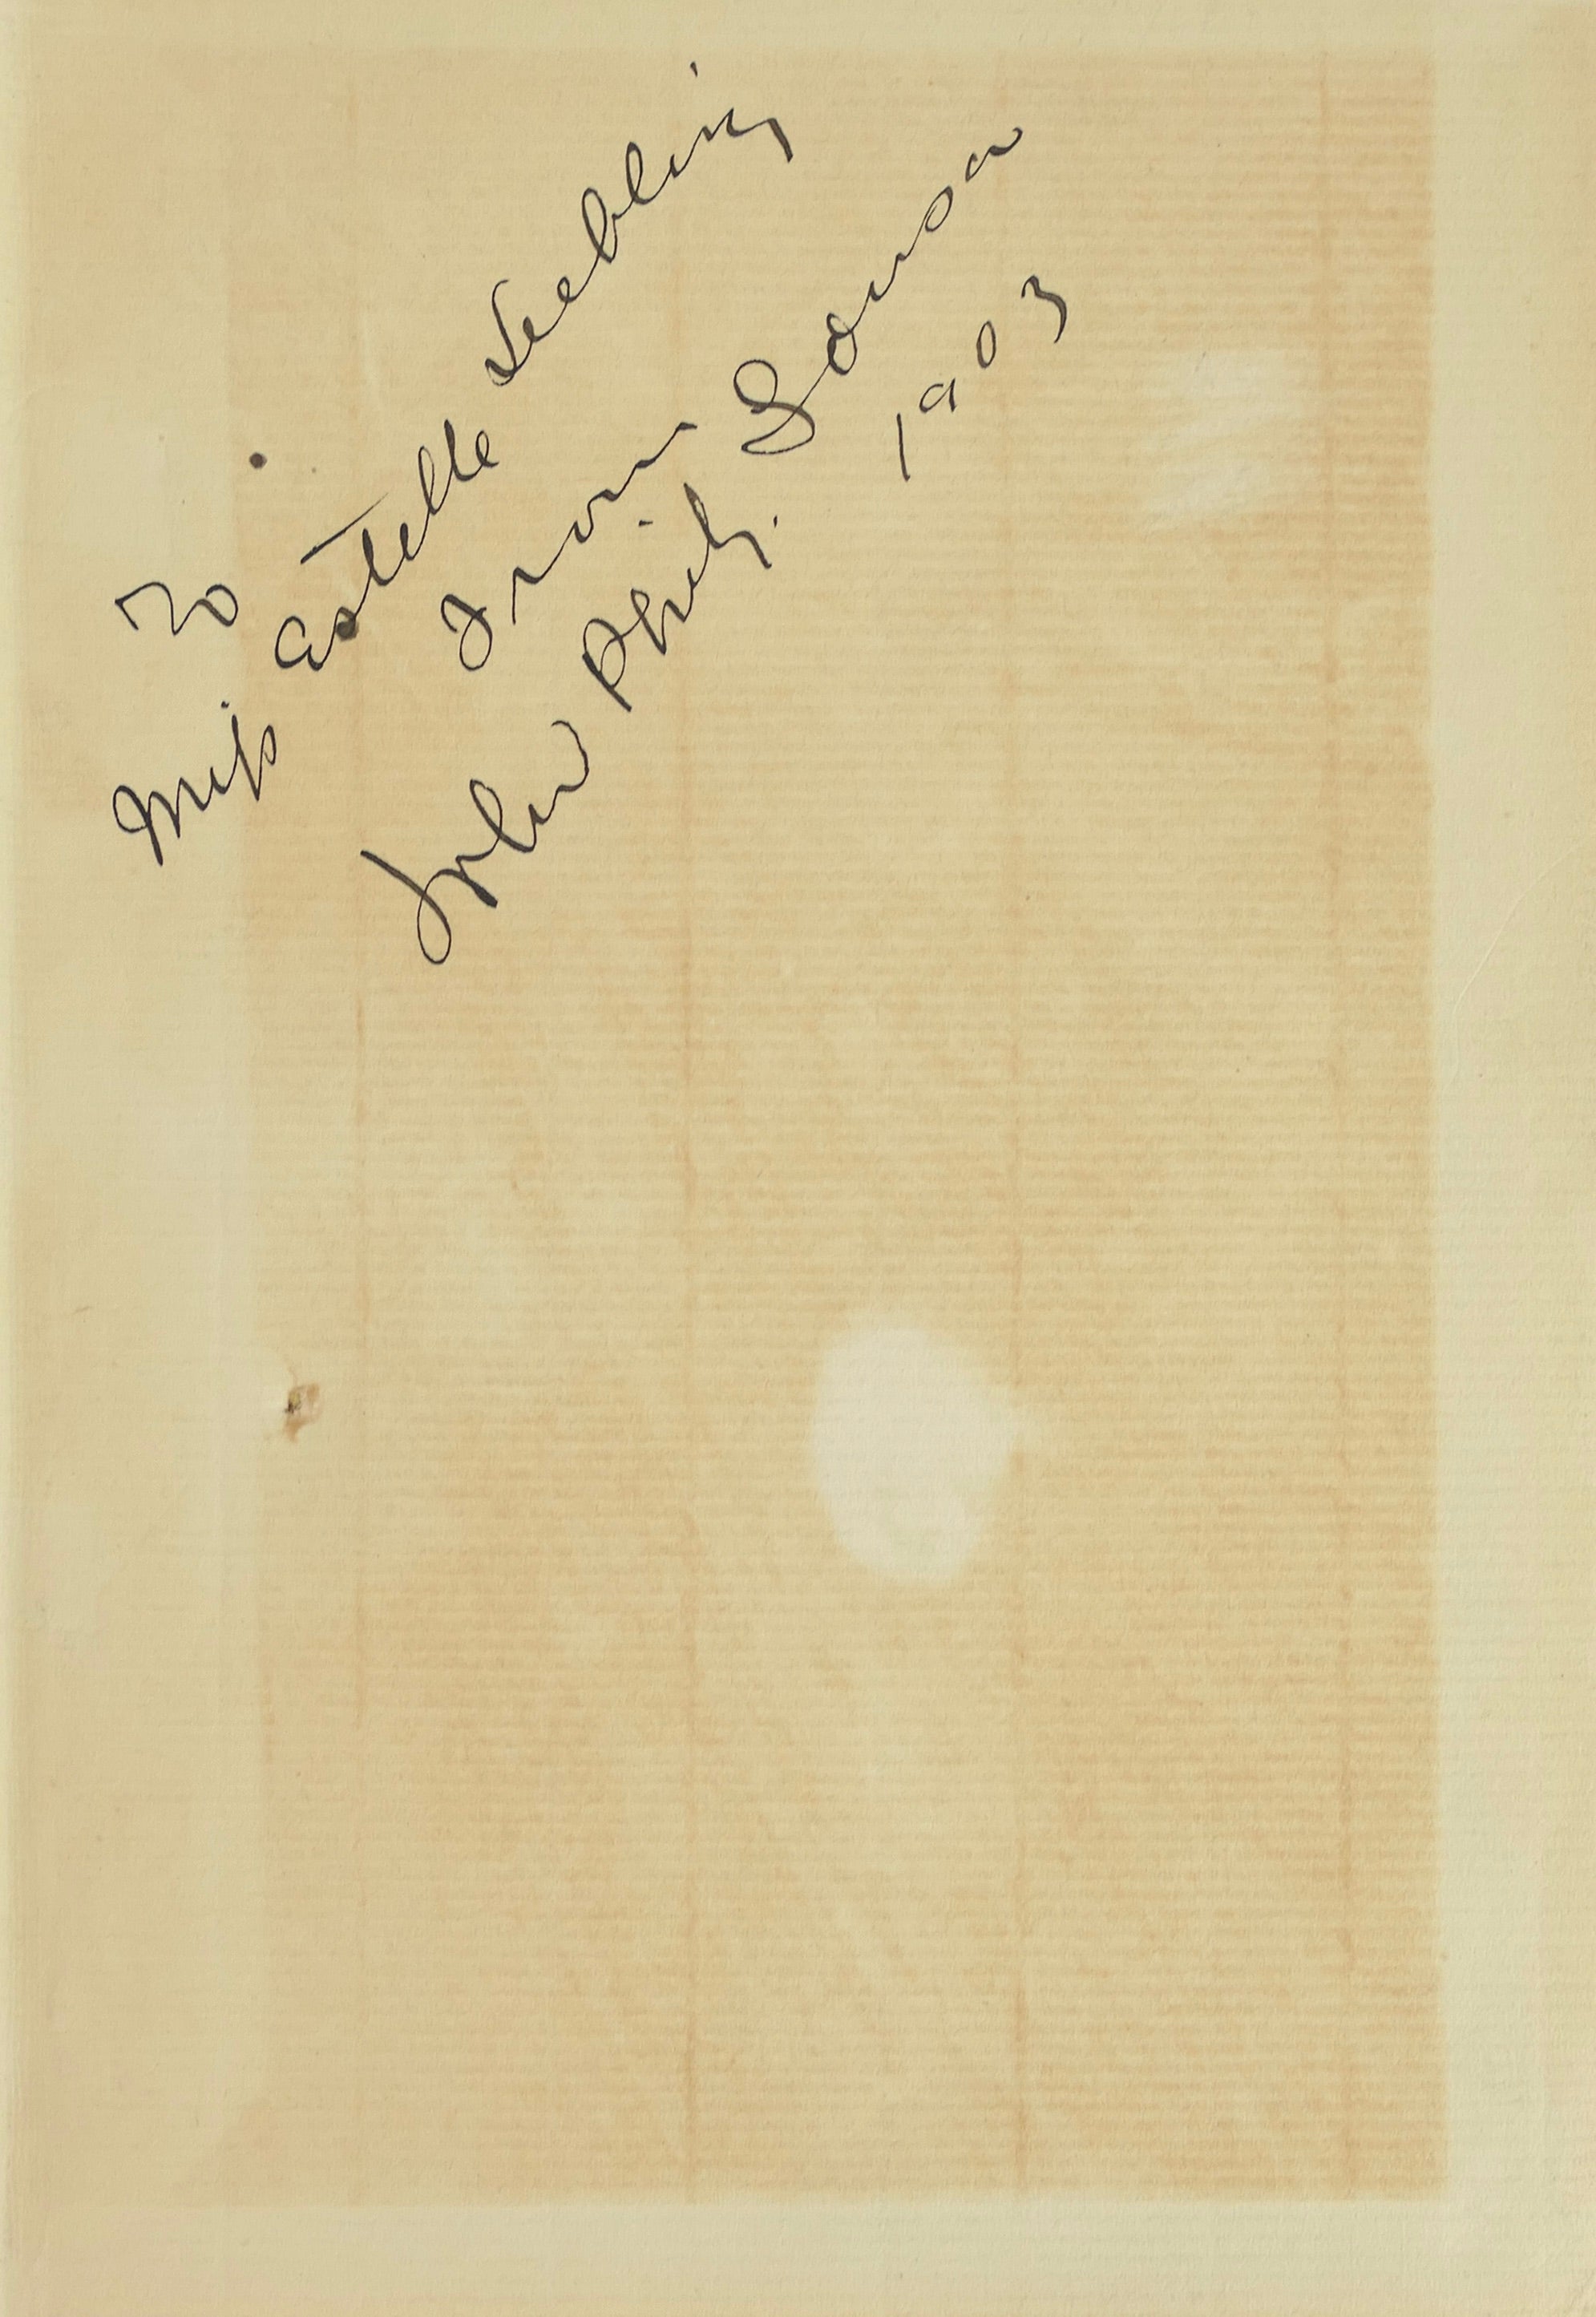 To
Miss Estelle Liebling
From
John Philip Sousa
1903